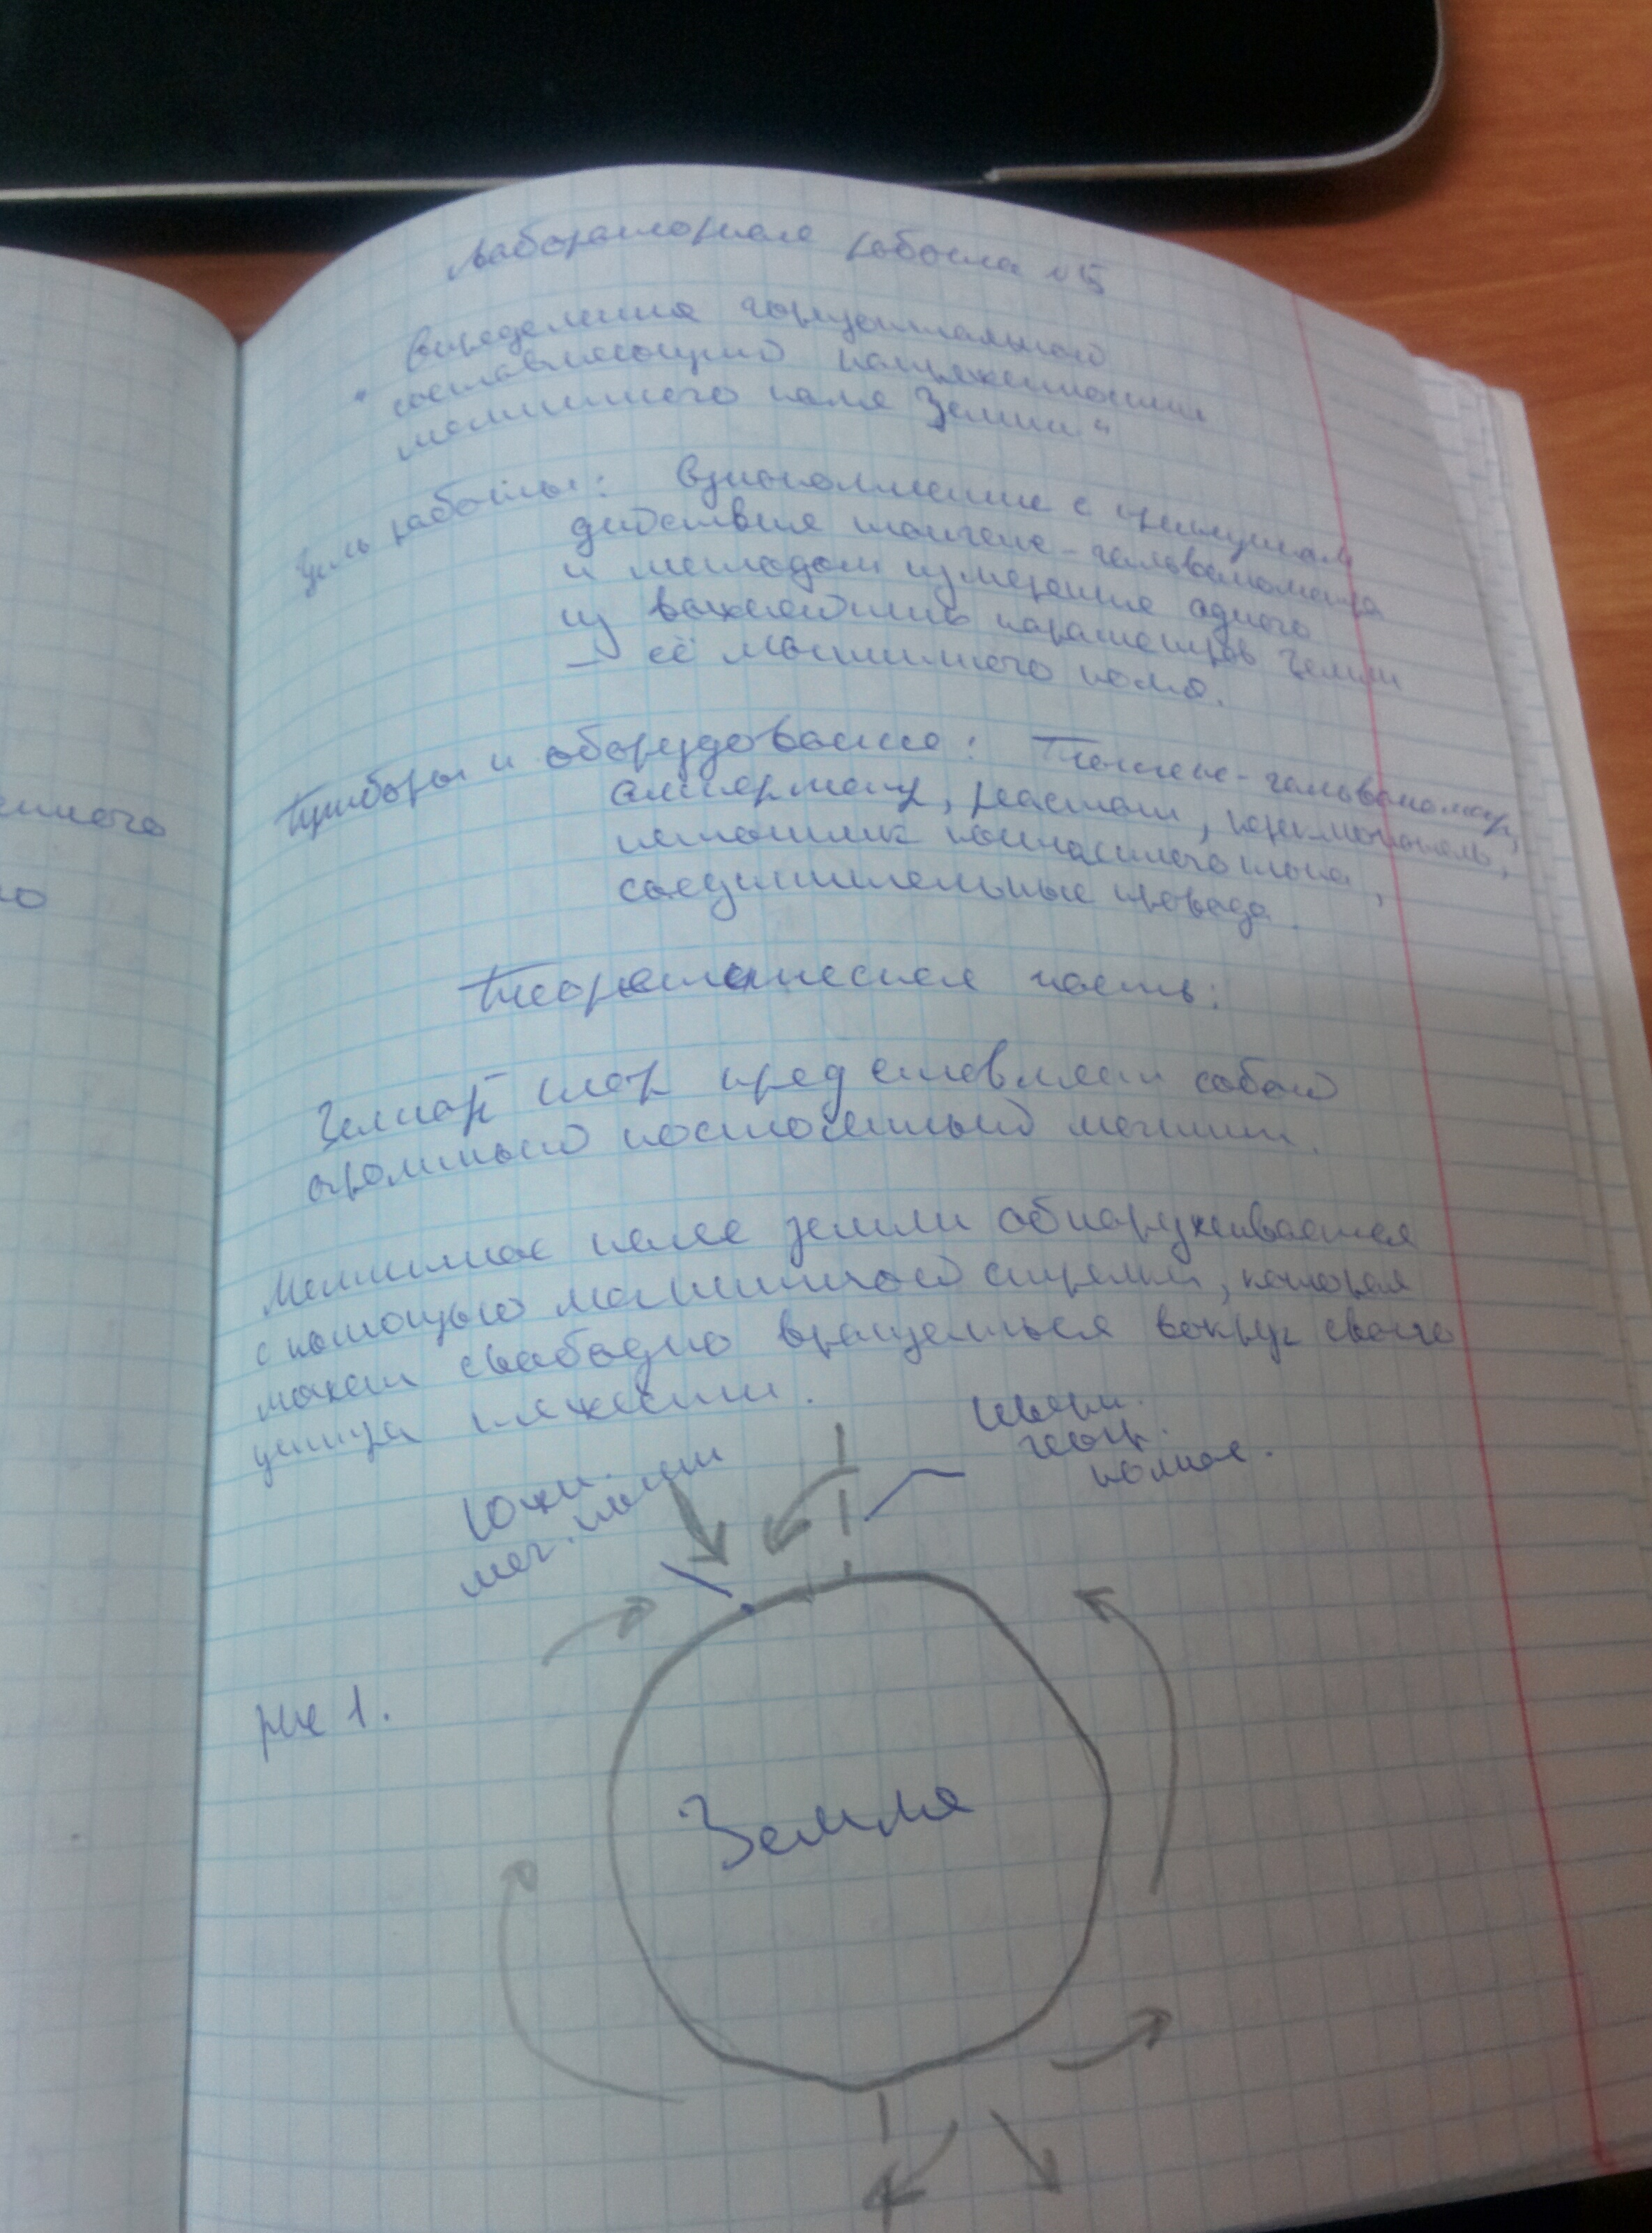 Лабораторная работа №5
"Определение горизонтальной
составляющей напряженности
магнитного поля Земли"
Цель работы: Ознакомление с принципом
действия тангенс-гальванометра
и методом измерения одного
из важнейших параметров Земли
— её магнитного поля.
Приборы и оборудование: Тангенс-гальванометр,
амперметр, реостат, переключатель,
источник постоянного тока,
соединительные провода
Теоретическая часть:
Земной шар представляет собой
огромный постоянный магнит.
Магнитное поле земли обнаруживается
с помощью магнитной стрелки, которая
может свободно вращаться вокруг своего
центра тяжести.
Южн.
маг. полюс
Северн.
геогр.
полюс.
рис 1.
Земля
нного
но